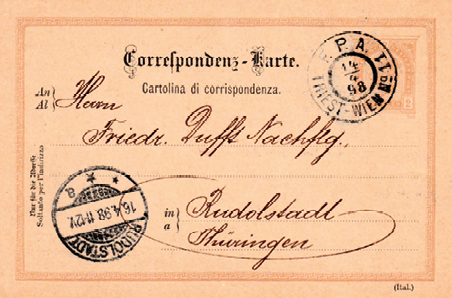 Correspondenz-Karte.
Cartolina di corrispondenza.
An
Al
Herrn
Friedr. Dufft Nachflg.
in
a
Rudolstadt
Thüringen
Nur für die Adresse
Soltanto per l'indirizzo
F.P.A. 11
14
4
98
TRIEST-WIEN
RUDOLSTADT
16.4.98.11-12V.
* * a
2
(Ital.)